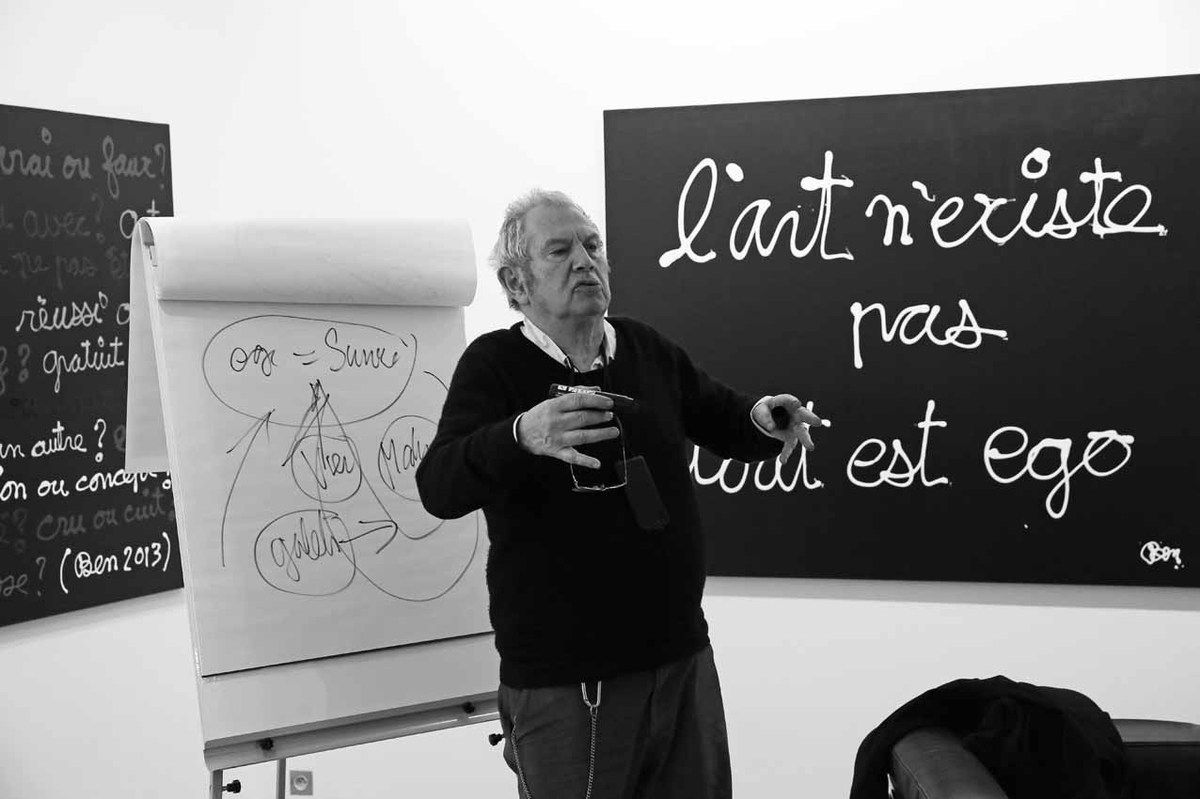 vrai ou faux?
avec?
ne pas
réussi
? gratuit
un autre?
on ou concept?
? cru ou cuit?
?
(Ben 2013)
ego = Survie
l'art n'existe
pas
tout est ego
Ben